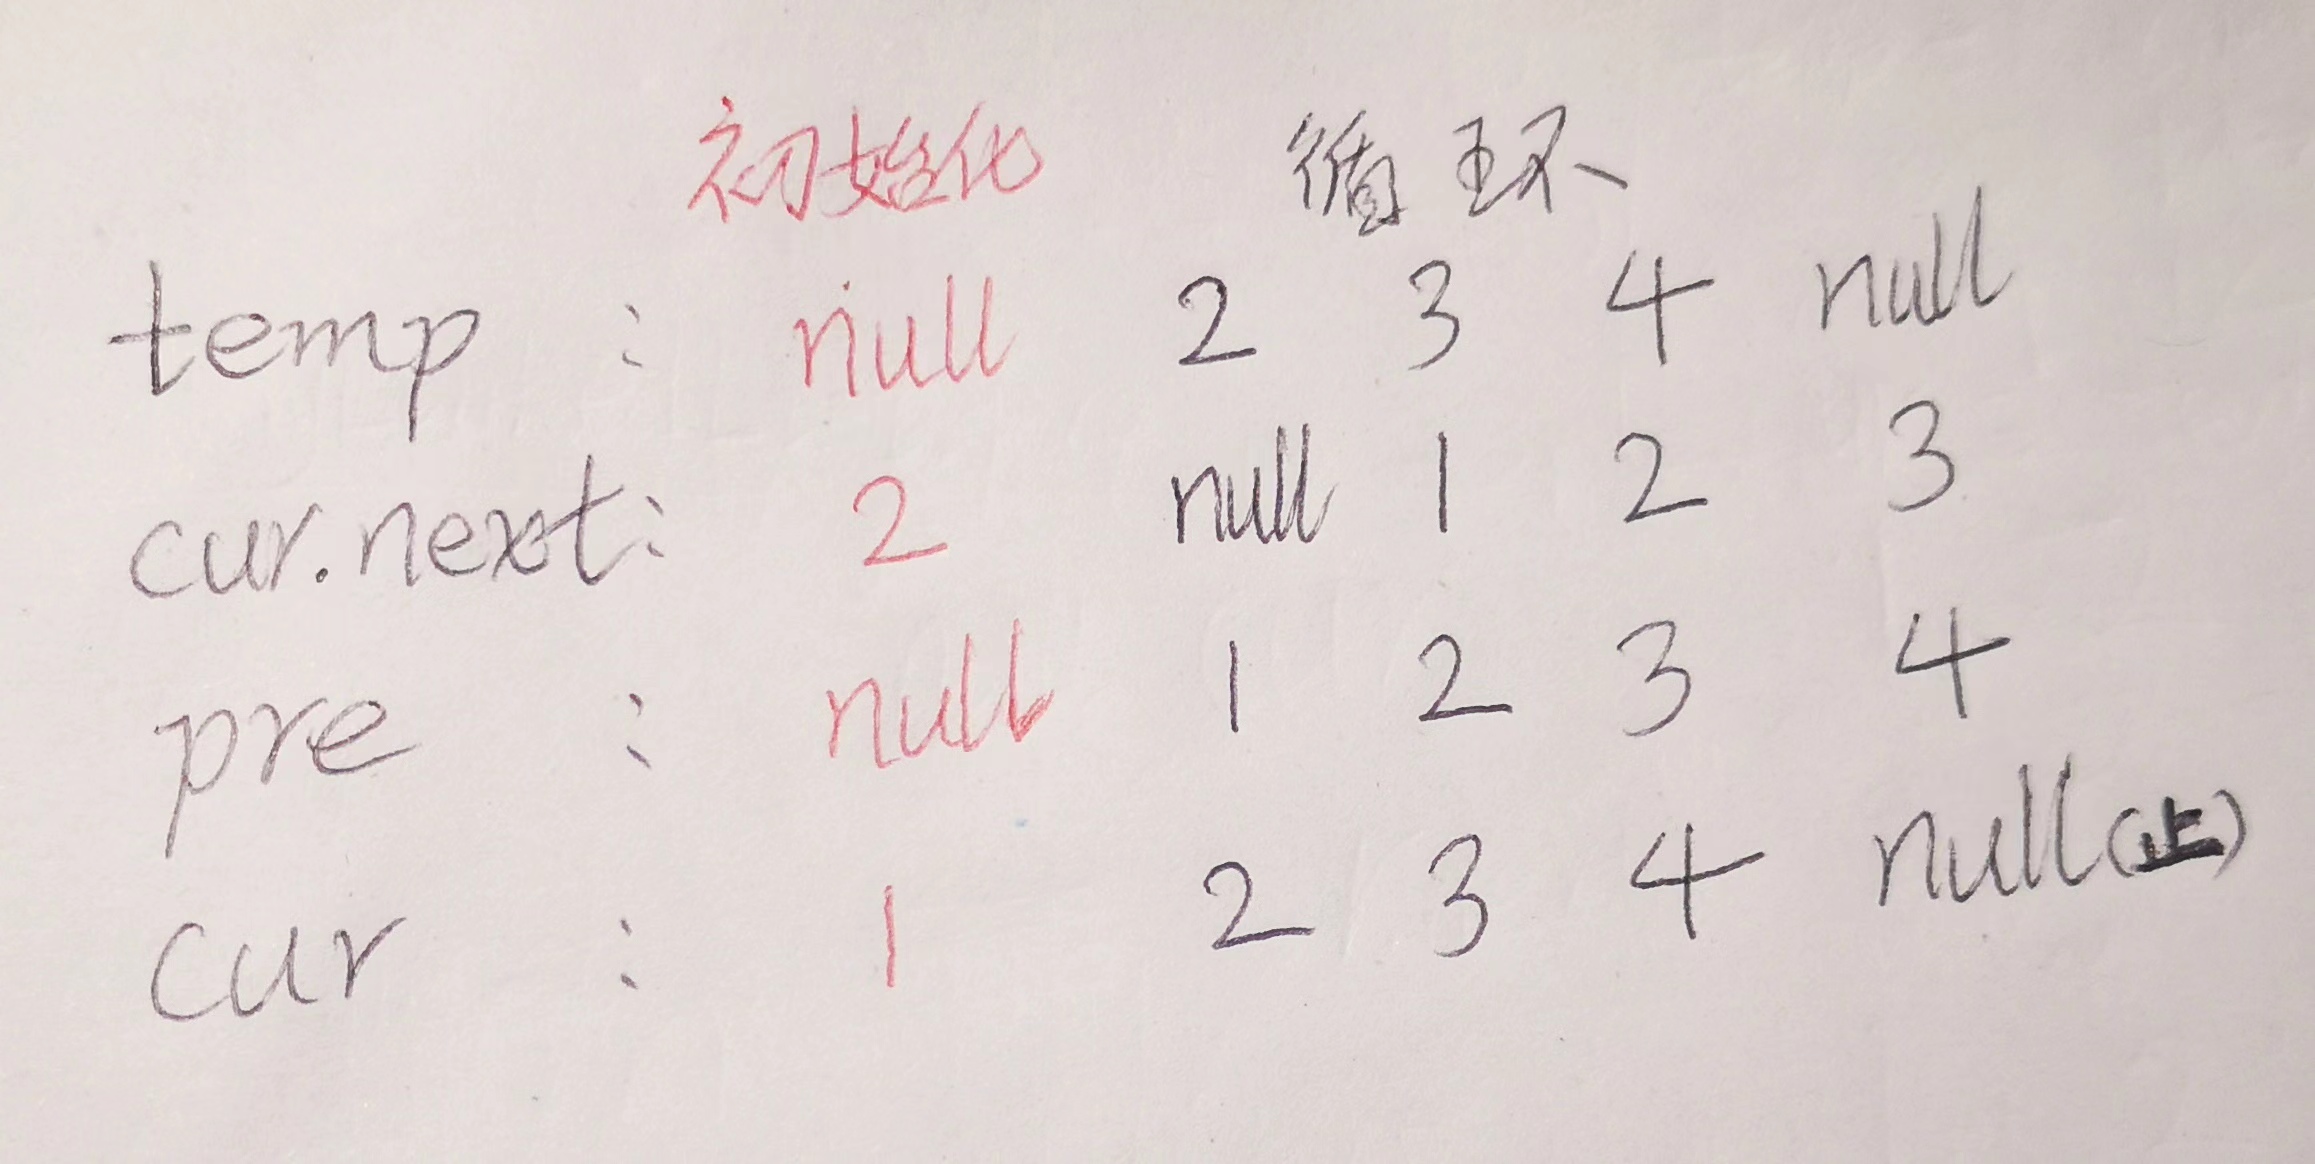 初始化 循环
temp : null 2 3 4 null
cur.next: 2 null 1 2 3
pre : null 1 2 3 4
cur : 1 2 3 4 null(止)